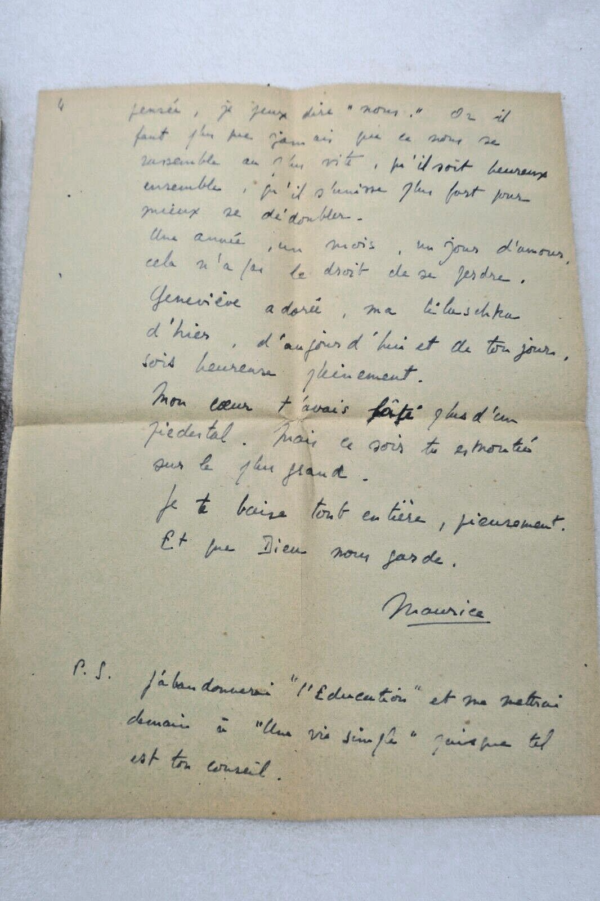 4
pensée, je veux dire "nous." Or il
faut plus que jamais que ce nous se
rassemble au plus vite, qu'il soit heureux
ensemble, qu'il s'unisse plus fort pour
mieux se dédoubler.
Une année, un mois, un jour d'amour,
cela n'a pas le droit de se perdre.
Geneviève adorée, ma
d'hier, d'aujourd'hui et de toujours,
sois heureuse pleinement.
Mon cœur t'avais forgé plus d'un
piedestal. Mais ce soir tu es montée
sur le plus grand.
Je te baise tout entière, pieusement.
Et que Dieu nous garde.
Maurice
P.S. J'abandonnerai "l'Education" et me mettrai
demain à "Une vie simple" puisque tel
est ton conseil.